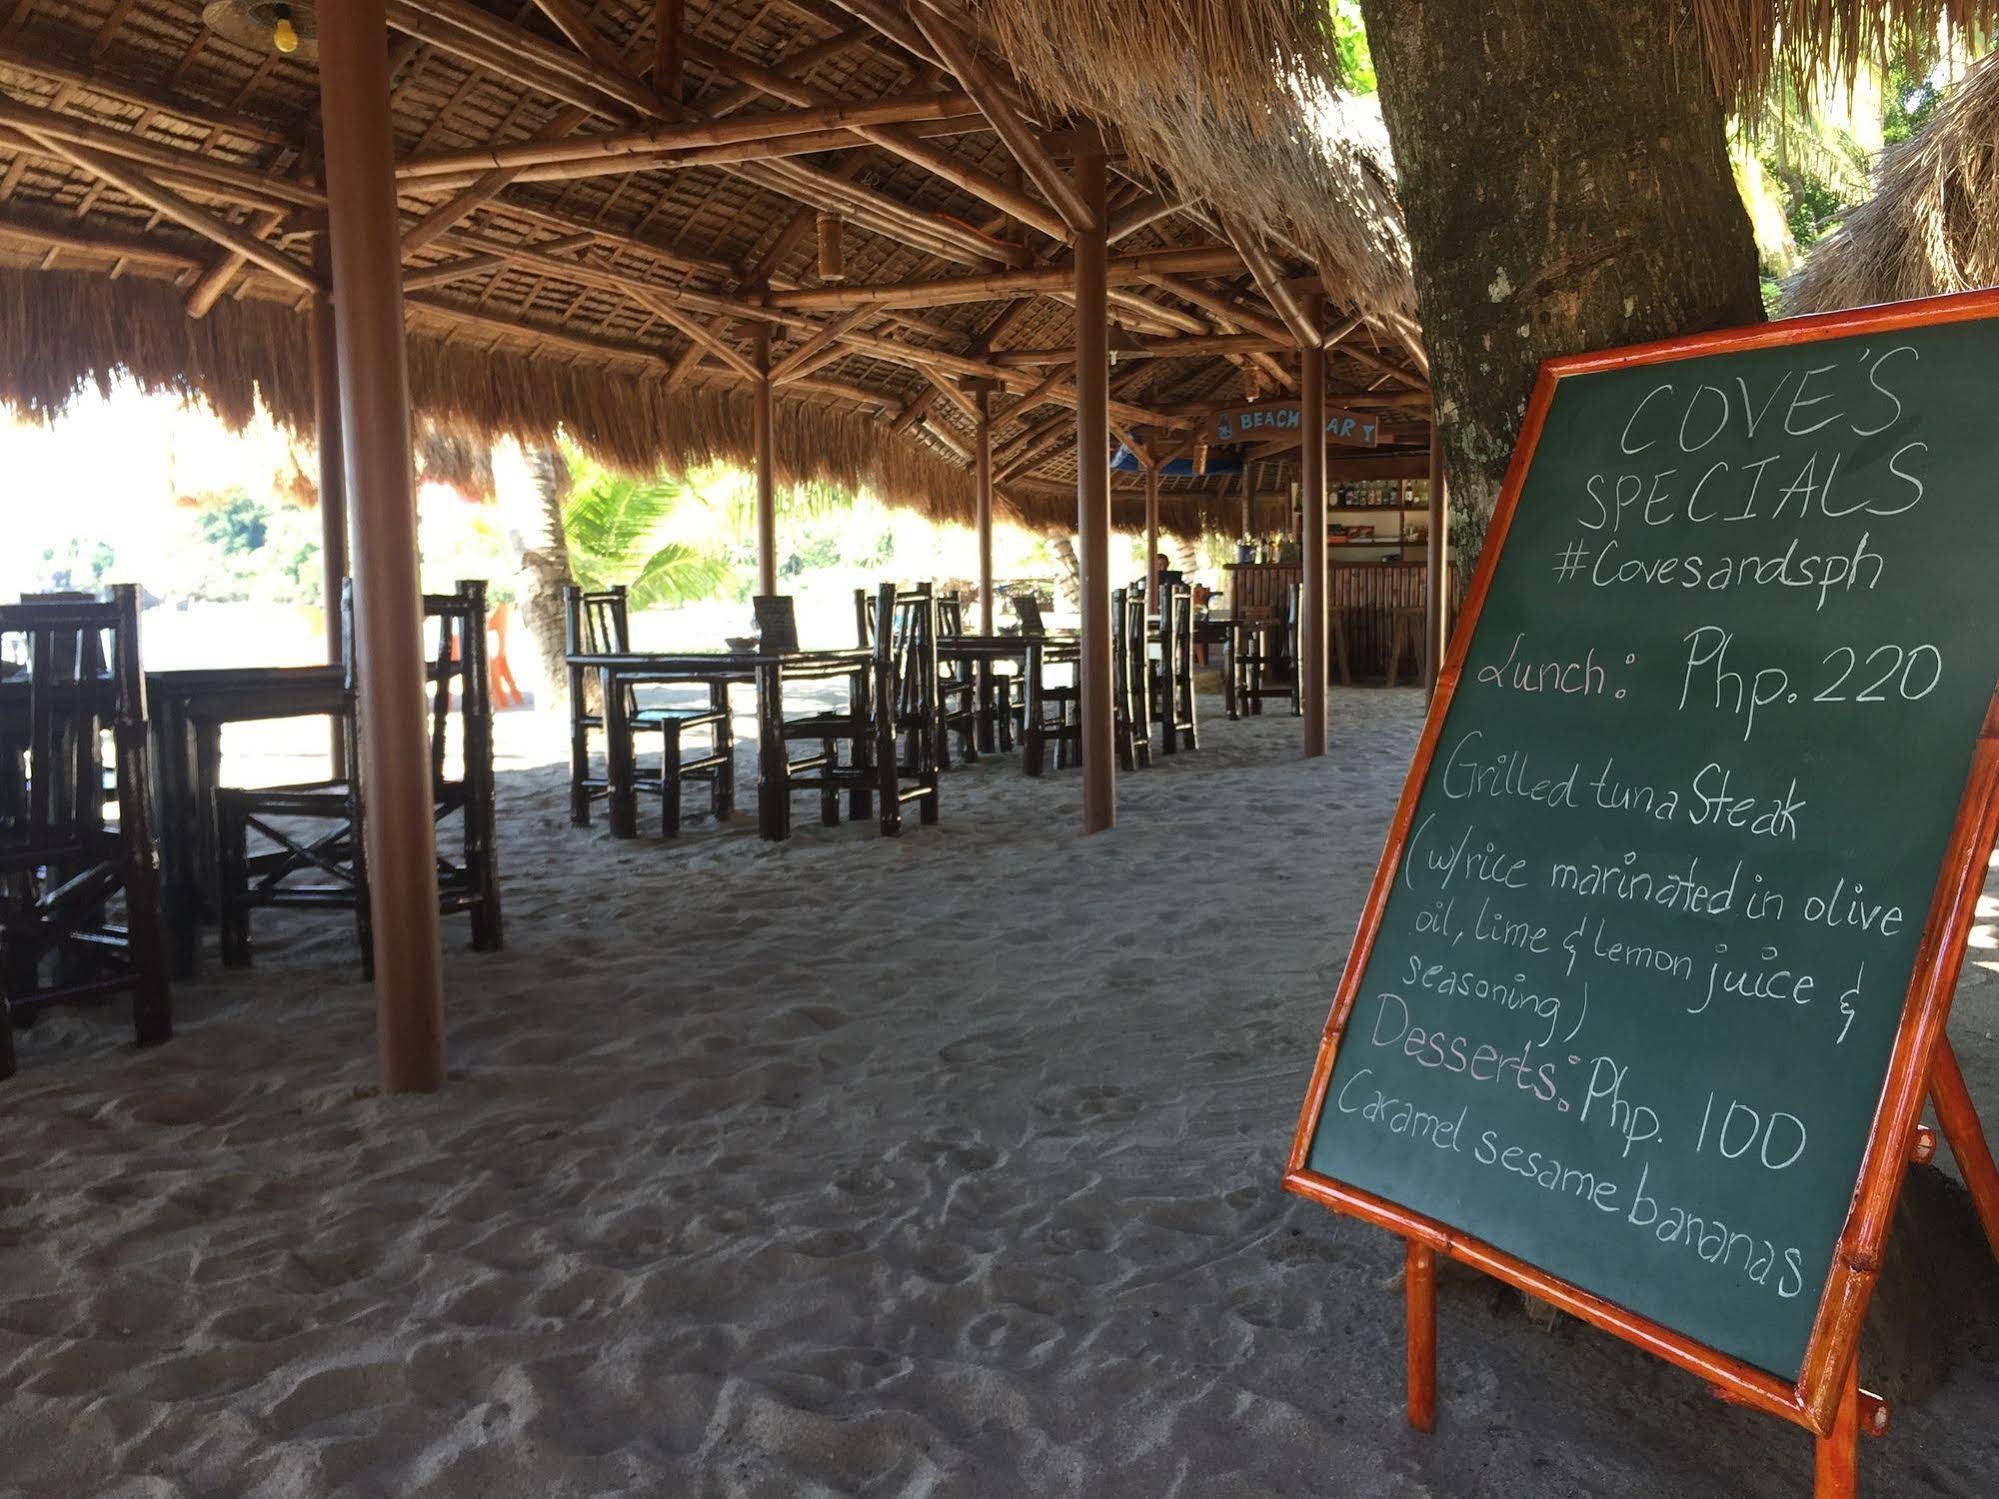 BEACH
COVE'S
SPECIALS
#Covesandsph
Lunch: Php. 220
Grilled tuna Steak
(w/rice marinated in olive
oil, lime & lemon juice &
seasoning)
Desserts: Php. 100
Caramel sesame bananas